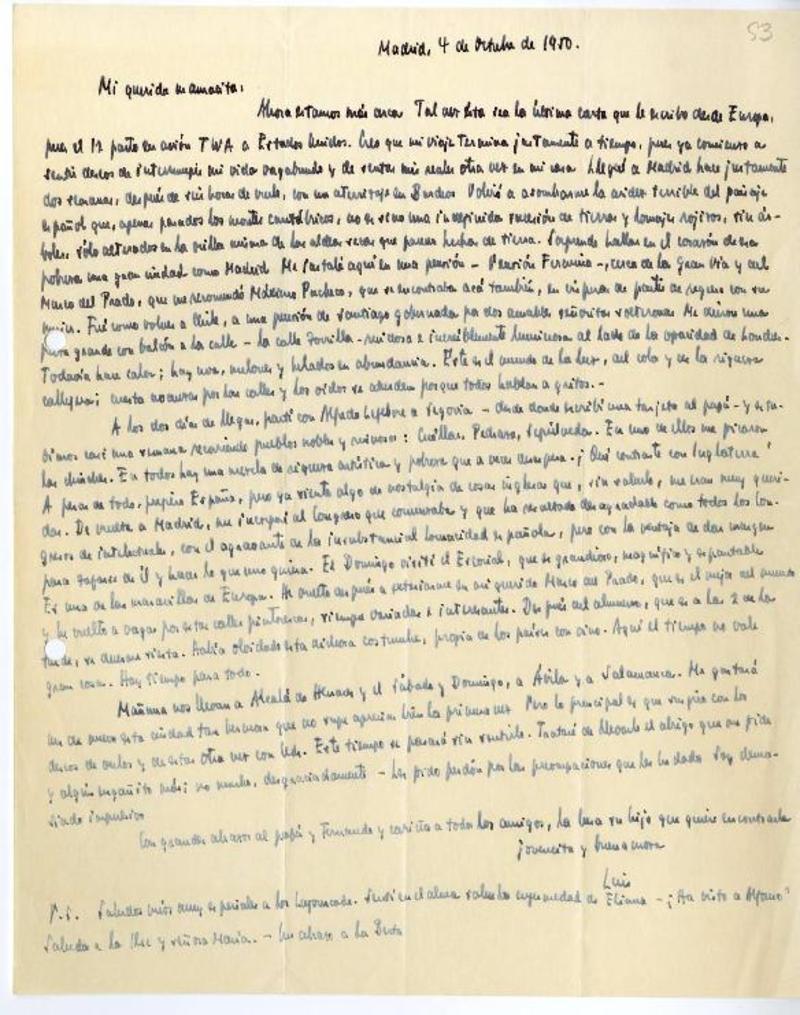 53
Madrid, 4 de Octubre de 1950.
Mi querida mamacita:
Ahora estamos más cerca. Tal vez ésta sea la última carta que le escribo desde Europa,
pues el 12 parto en avión TWA a Estados Unidos. Creo que mi viaje termina justamente a tiempo, pues ya comienzo a
sentir deseos de interrumpir mi vida vagabunda y de sentar mis reales otra vez en mi casa. Llegué a Madrid hace justamente
dos semanas, después de seis horas de vuelo, con un aterrizaje en Burdeos. Volvió a asombrarme la aridez terrible del paisaje
español que, apenas pasados los montes cantábricos, no es sino una indefinida sucesión de tierras y lomajes rojizos, sin ár-
boles, sólo alterados en la orilla misma de las aldeas secas que parecen hechas de tierra. Sorprende hallar en el corazón de esa
pobreza una gran ciudad como Madrid. Me instalé aquí en una pensión - Pensión Fermina -, cerca de la Gran Vía y del
Museo del Prado, que me recomendó Máximo Pacheco, que se encontraba acá también, en vísperas de partir de regreso con su
mujer. Fué como volver a Chile, a una pensión de Santiago gobernada por dos amables señoritas solteronas. Me dieron una
pieza grande con balcón a la calle - la calle Zorrilla - ruidosa e increíblemente luminosa al lado de la opacidad de Londres.
Todavía hace calor; hay uva, melones y helados en abundancia. Este es el mundo de la luz, del color y de la riqueza
callejera; cuesta moverse por las calles y los oídos se aturden porque todos hablan a gritos. -
A los dos días de llegar, partí con Alfredo Lefebvre a Segovia - desde donde escribí una tarjeta al papá - y estu-
vimos casi una semana recorriendo pueblos nobles y ruinosos: Cuéllar, Pedraza, Sepúlveda. En uno de ellos me picaron
las chinches. En todos hay una mezcla de riqueza artística y pobreza que a veces desespera. ¡Qué contraste con Inglaterra!
A pesar de todo, prefiero España, pero ya siento algo de nostalgia de cosas inglesas que, sin saberlo, me eran muy queri-
das. De vuelta a Madrid, me incorporé al Congreso que comenzaba y que ha resultado desagradable como todos los Con-
gresos de intelectuales, con el agravante de la insubstancial locuacidad española, pero con la ventaja de dar margen
para zafarse de él y hacer lo que uno quiera. El Domingo visité el Escorial, que es grandioso, magnífico y espantable.
Es una de las maravillas de Europa. He vuelto después a extasiarme en mi querido Museo del Prado, que es el mejor del mundo
y he vuelto a vagar por estas calles pintorescas, siempre variadas e interesantes. Después del almuerzo, que es a las 2 de la
tarde, se duerme siesta. Había olvidado esta dichosa costumbre, propia de los países con vino. Aquí el tiempo no vale
gran cosa. Hay tiempo para todo.
Mañana nos llevan a Alcalá de Henares y el Sábado y Domingo, a Ávila y a Salamanca. Me gustará
ver de nuevo esta ciudad tan hermosa que no supe apreciar bien la primera vez. Pero lo principal es que sigo con los
deseos de verlos y de estar otra vez con Uds. Este tiempo se pasará sin sentirlo. Trataré de llevarle el abrigo que me pide
y algún engañito más; no mucho, desgraciadamente - Les pido perdón por las preocupaciones que les he dado. Soy dema-
siado impulsivo
Con grandes abrazos al papá y Fernando y cariños a todos los amigos, la besa su hijo que quiere encontrarla
jovencita y buena moza
Luis
P.S. Saludos míos muy especiales a los . Sentí en el alma saber la enfermedad de Eliana - ¿Ha visto a Alfonso?
Saluda a la Ilse y señora María. - Un abrazo a la Berta